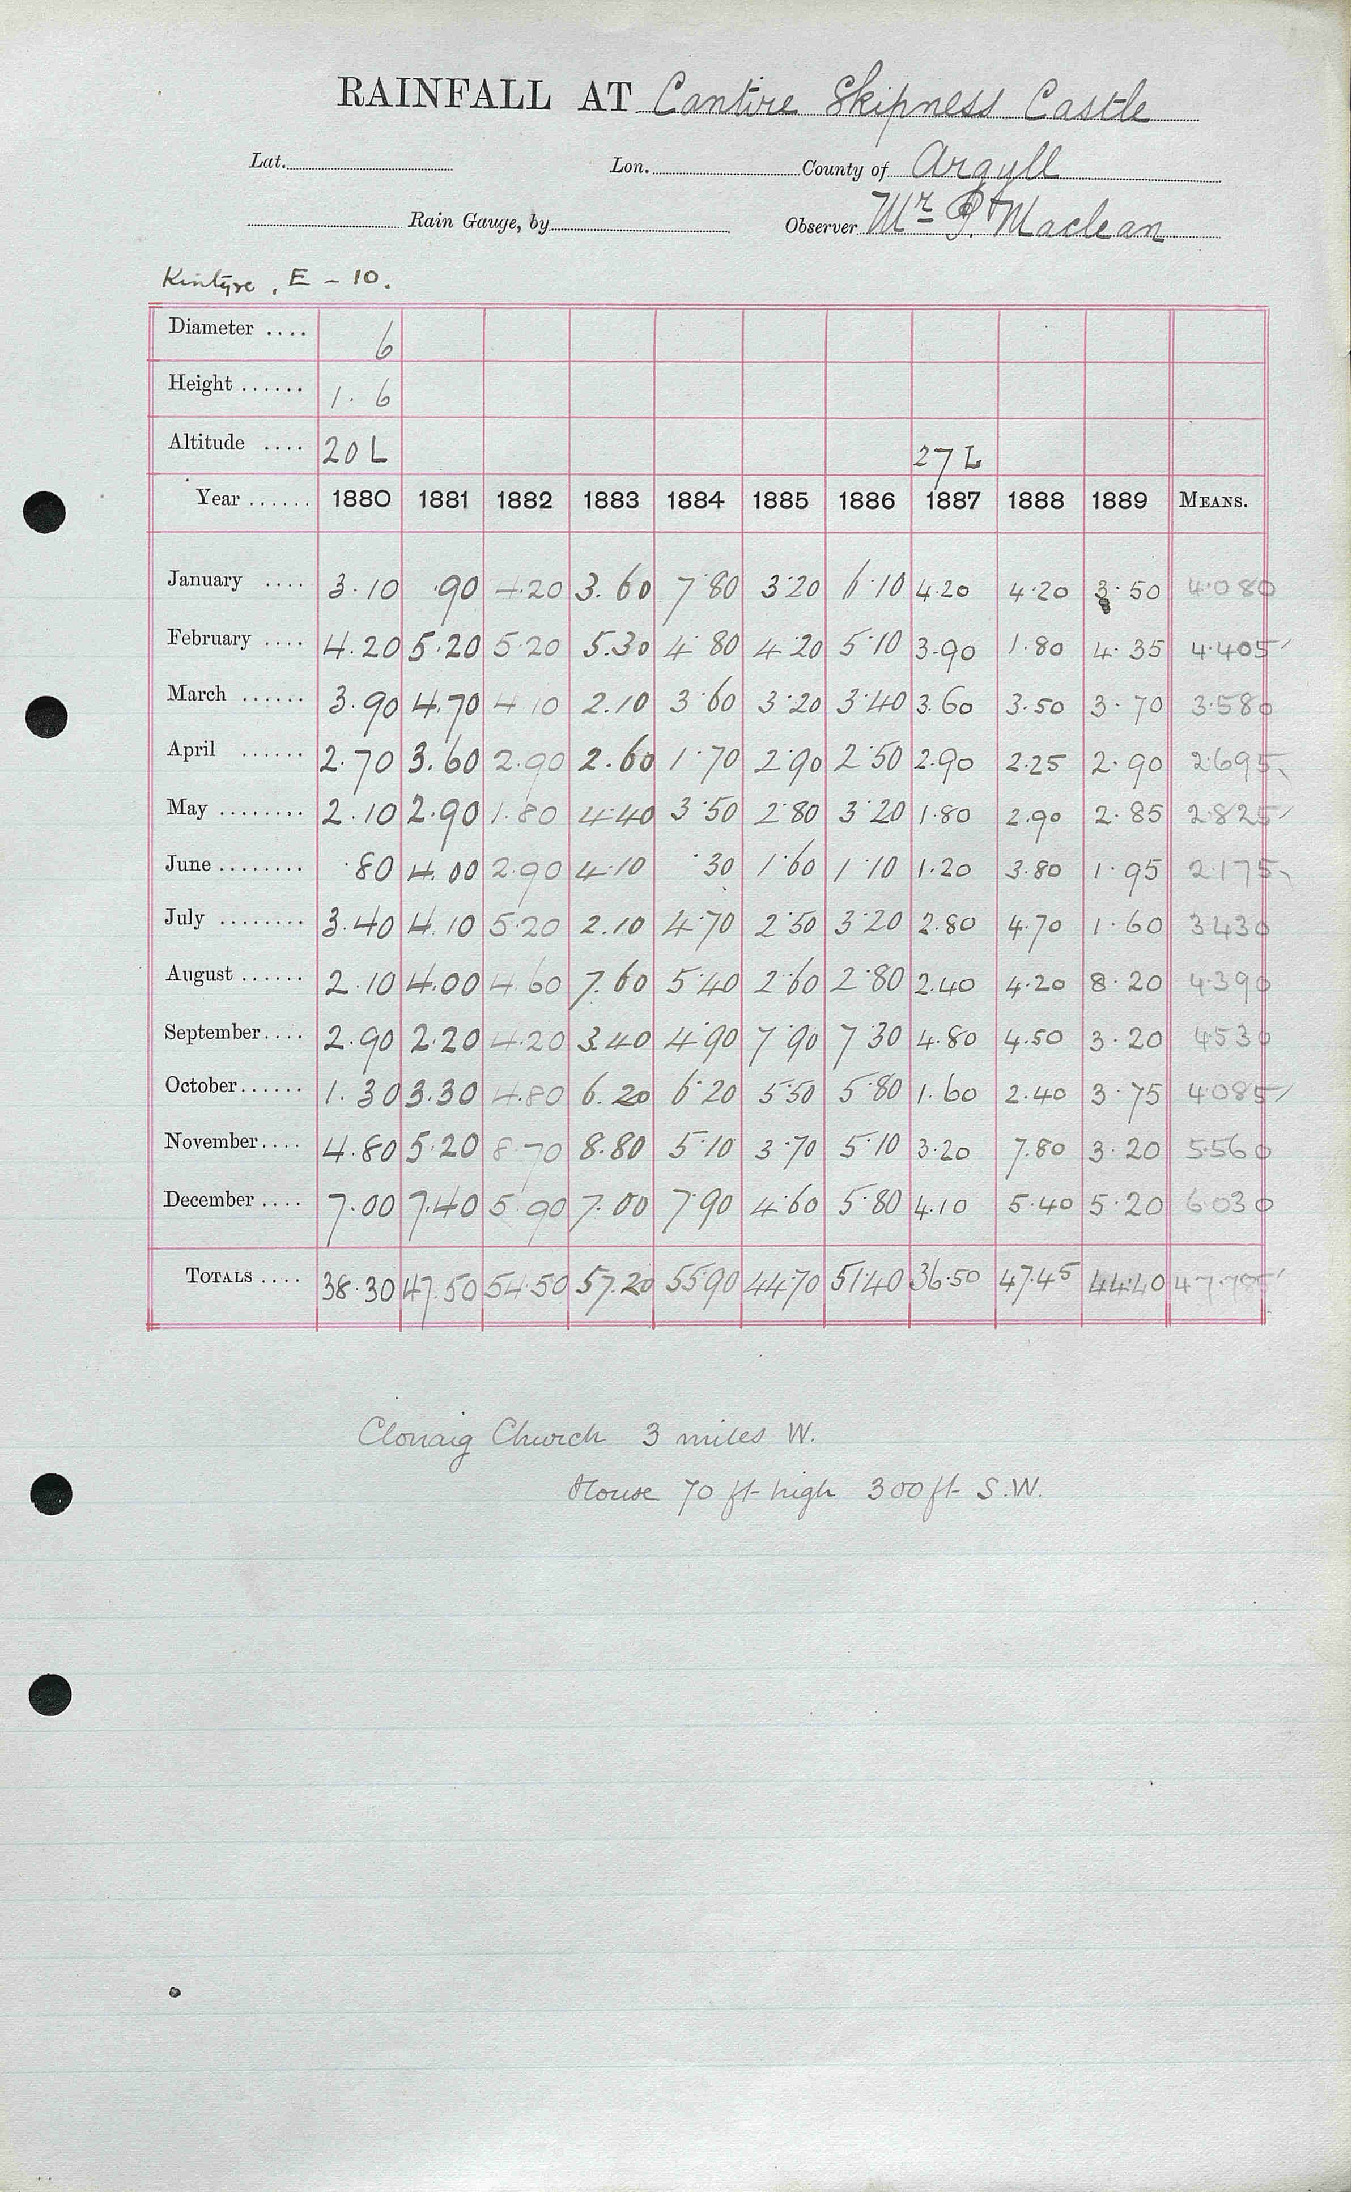 RAINFALL AT Cantire Skipness Castle
Lat. Lon. County of Argyll
Rain Gauge, by Observer Mr P. Maclean
Kintyre, E - 10.
Diameter .... 6
Height ...... 1. 6
Altitude .... 20 L 27 L
Year ...... 1880 1881 1882 1883 1884 1885 1886 1887 1888 1889 MEANS.
January .... 3.10 .90 4.20 3.60 7.80 3.20 6.10 4.20 4.20 3.50 4.080
February .... 4.20 5.20 5.20 5.30 4.80 4.20 5.10 3.90 1.80 4.35 4.405
March ...... 3.90 4.70 4.10 2.10 3.60 3.20 3.40 3.60 3.50 3.70 3.580
April ...... 2.70 3.60 2.90 2.60 1.70 2.90 2.50 2.90 2.25 2.90 2.695
May ........ 2.10 2.90 1.80 4.40 3.50 2.80 3.20 1.80 2.90 2.85 2.825
June ........ .80 4.00 2.90 4.10 .30 1.60 1.10 1.20 3.80 1.95 2.175
July ........ 3.40 4.10 5.20 2.10 4.70 2.50 3.20 2.80 4.70 1.60 3430
August ...... 2.10 4.00 4.60 7.60 5.40 2.60 2.80 2.40 4.20 8.20 4.390
September .... 2.90 2.20 4.20 3.40 4.90 7.90 7.30 4.80 4.50 3.20 4530
October ...... 1.30 3.30 4.80 6.20 6.20 5.50 5.80 1.60 2.40 3.75 4.085
November .... 4.80 5.20 8.70 8.80 5.10 3.70 5.10 3.20 7.80 3.20 5.560
December .... 7.00 7.40 5.90 7.00 7.90 4.60 5.80 4.10 5.40 5.20 6.030
TOTALS .... 38.30 47.50 54.50 57.20 55.90 44.70 51.40 36.50 47.45 44.40 47.785
Clonaig Church 3 miles W.
House 70 ft high 300 ft S.W.